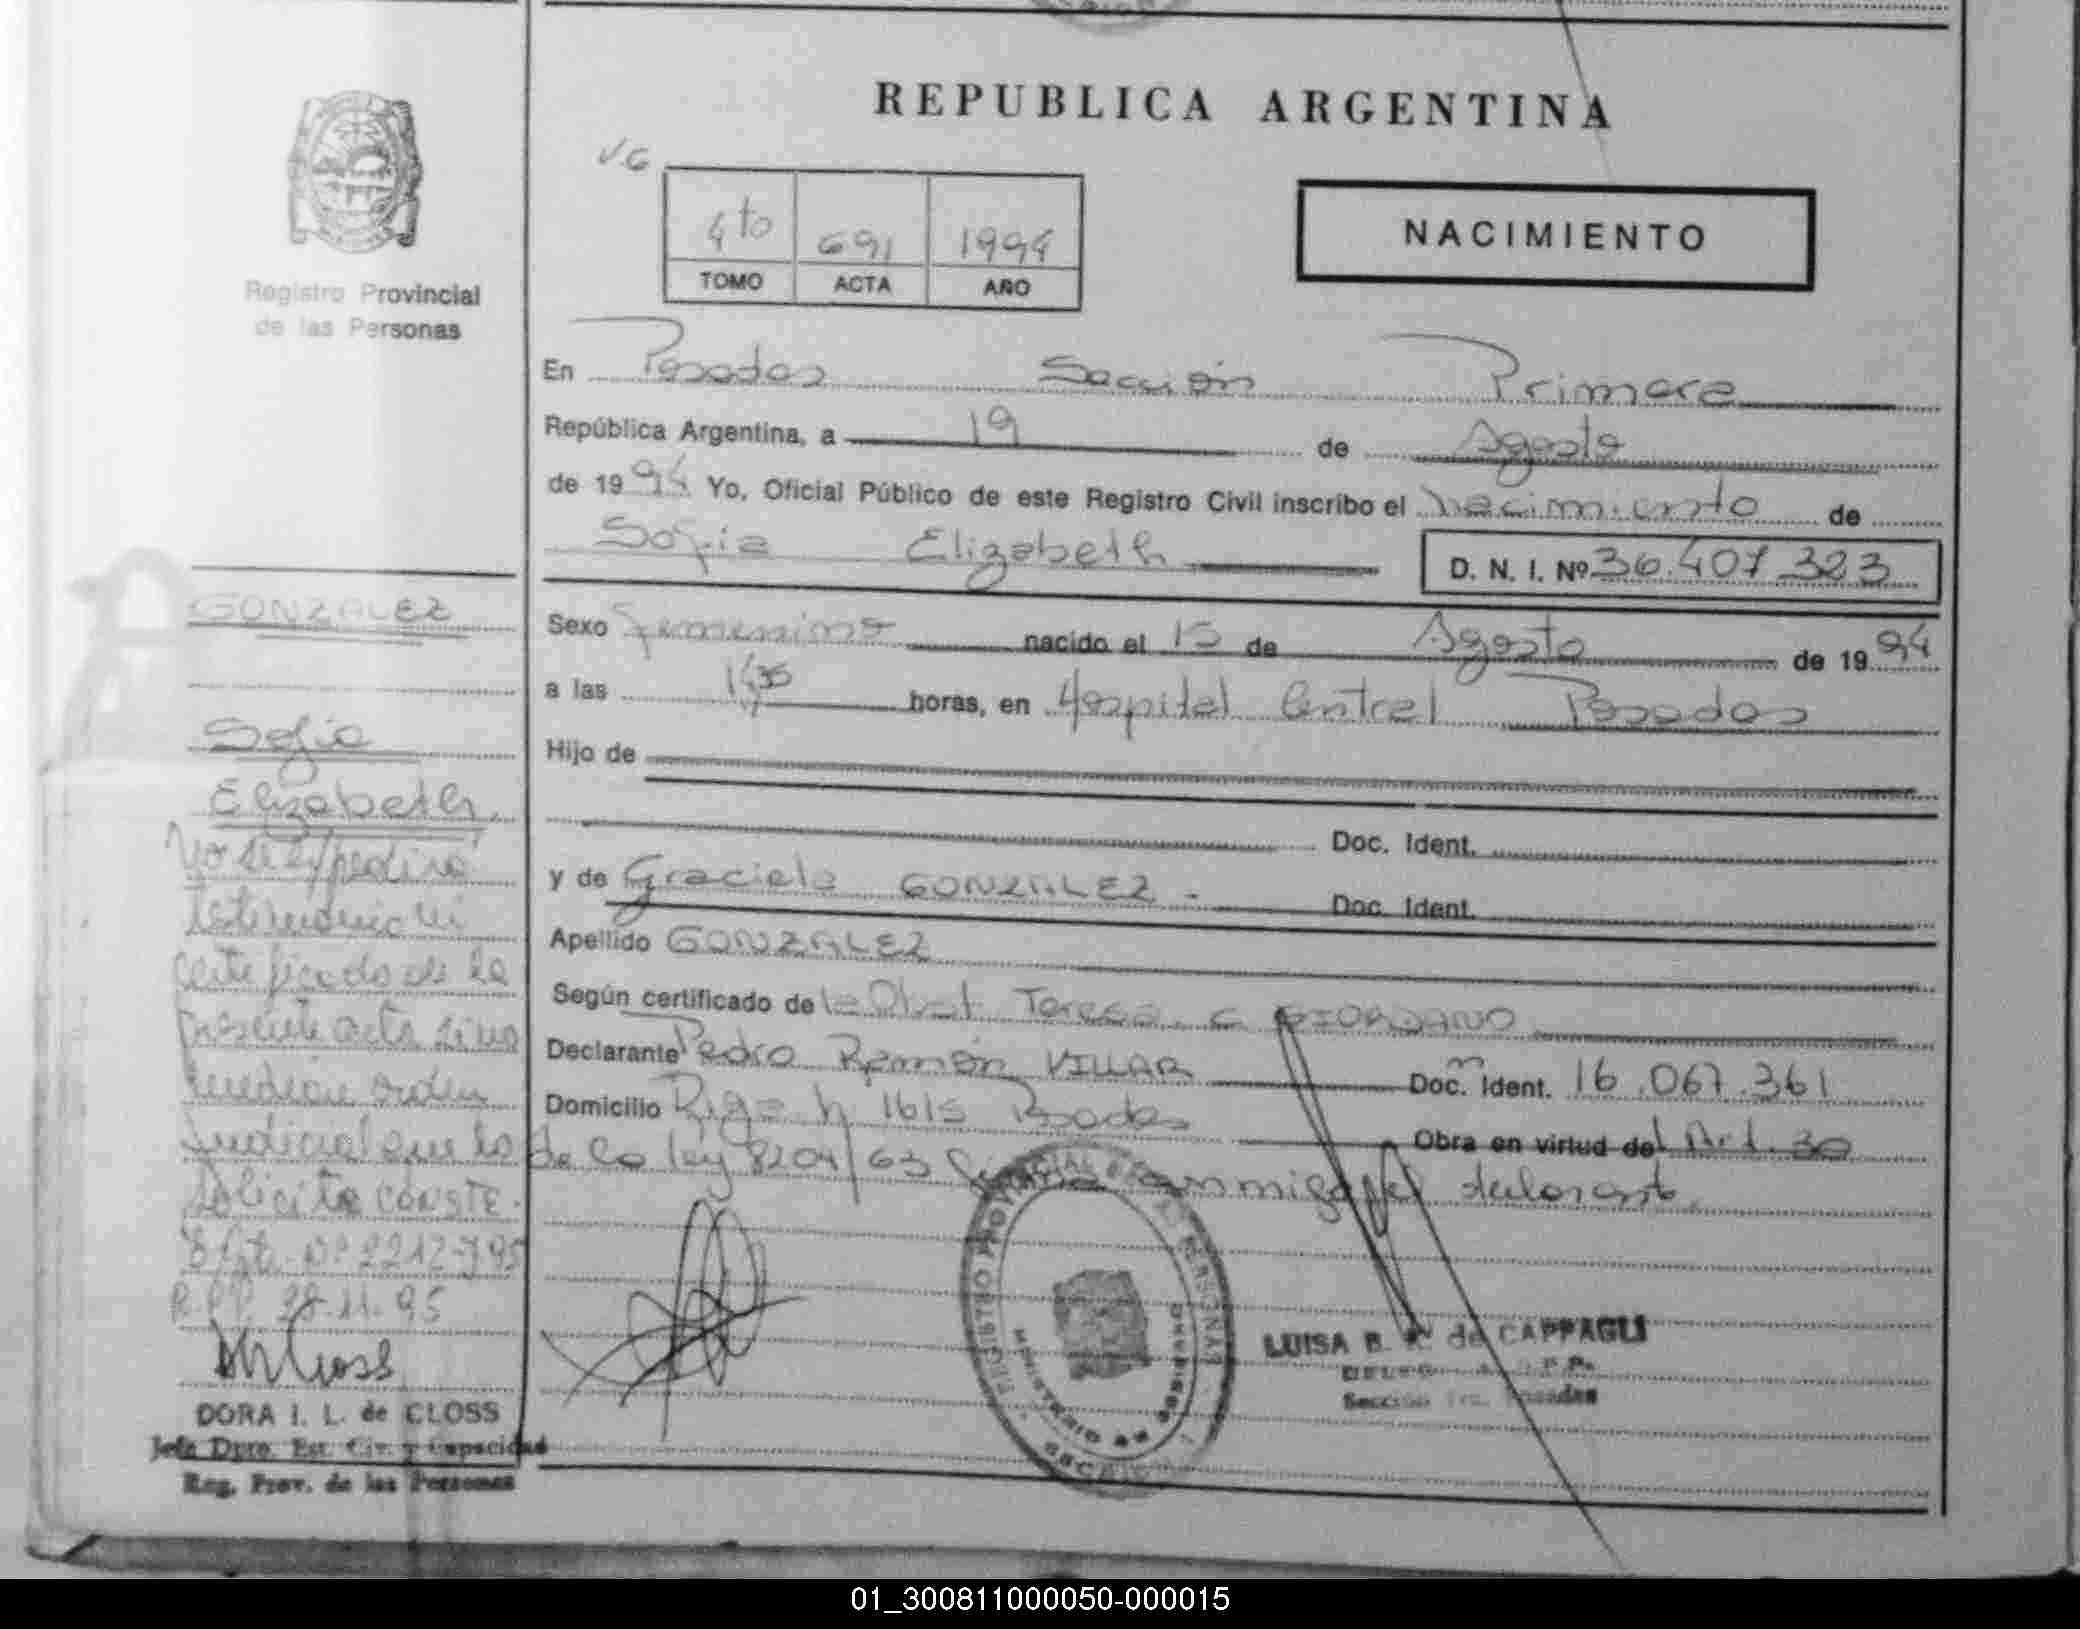 REPUBLICA ARGENTINA
Registro Provincial
de las Personas
V.G
4to 691 1994
TOMO ACTA AÑO
NACIMIENTO
En Posadas Sección Primera
República Argentina, a 19 de Agosto
de 1994 Yo, Oficial Público de este Registro Civil inscribo el nacimiento de
Sofia Elizabeth D. N. I. Nº 36.407.323
Sexo femenino nacido el 15 de Agosto de 1994
a las 14,35 horas, en Hospital Central Posadas
Hijo de
Doc. Ident.
y de Graciela GONZALEZ - Doc. Ident.
Apellido GONZALEZ
Según certificado de la Obst Teresa GIORDANO
Declarante Pedro Ramón VILLAR Doc. Ident. 16.067.361
Domicilio 1615 Posadas Obra en virtud del Art. 30
de la ley 8204/63 conmigo el
GONZALEZ
Sofia
Elizabeth.
No se expedirá
testimonio ni
certificado de la
presente acta sino
mediare orden
judicial que lo
solicite CONSTE.
Expte. Nº 2212-J-95
R.P.P. 28.11.95
DORA I. L. de CLOSS
Jefe Dpto. Est. Civ. y Capacidad
Reg. Prov. de las Personas
REGISTRO PROVINCIAL DE LAS PERSONAS
MINISTERIO DE GOBIERNO
LUISA B. R. de CAPPAGLI
Sección 1ra. Posadas
01_300811000050-000015